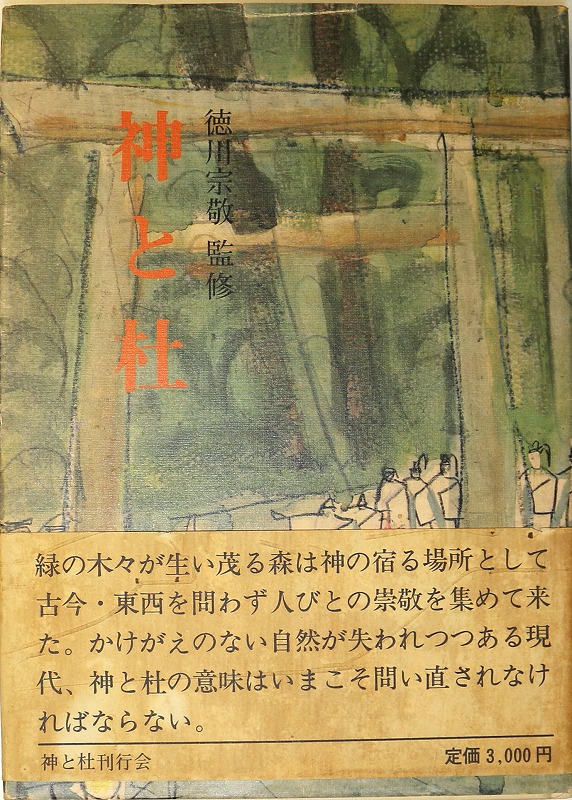 神と杜
徳川宗敬 監修
緑の木々が生い茂る森は神の宿る場所として
古今・東西を問わず人びとの崇敬を集めて来
た。かけがえのない自然が失われつつある現
代、神と杜の意味はいまこそ問い直されなけ
ればならない。
神と杜刊行会
定価3,000円